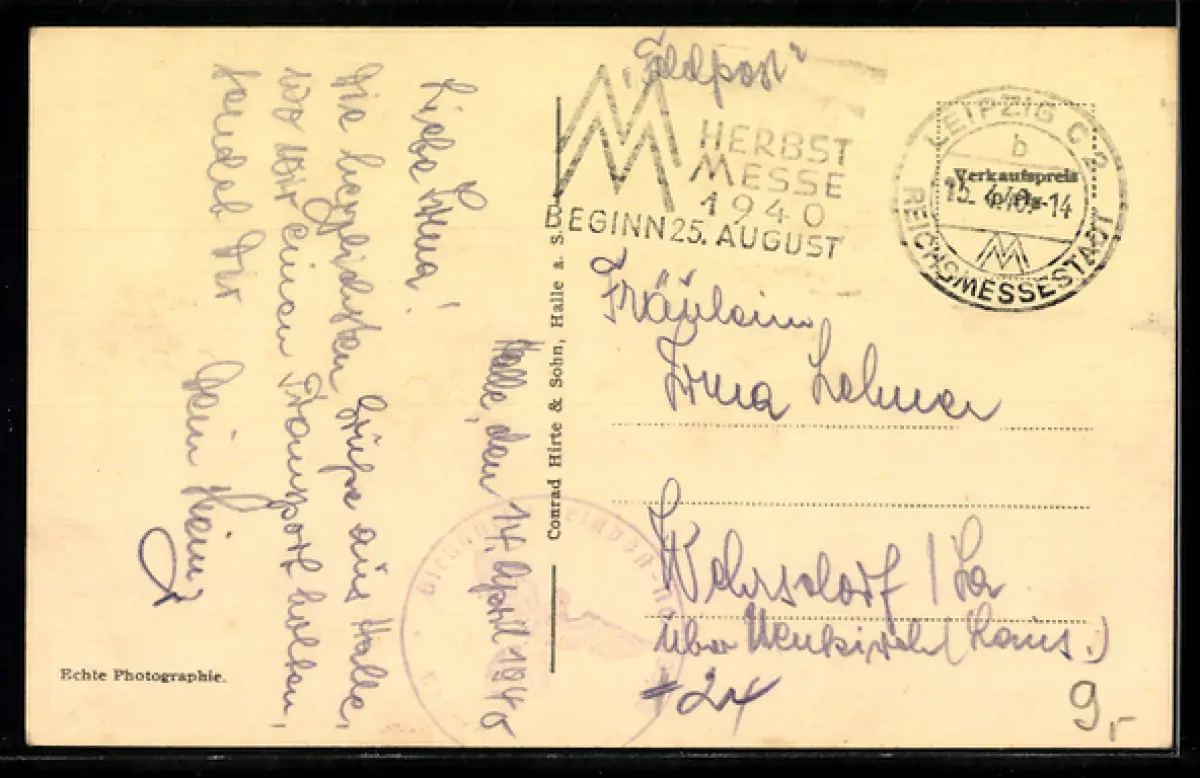 „Feldpost“
HERBST
MESSE
1940
BEGINN 25. AUGUST
LEIPZIG C2
b
Verkaufspreis
15. 4.40.-14
REICHSMESSESTADT
Fräulein
Irma
Wehrsdorf / La
über Neukirch (Laus.)
24
Halle, den 14. April 1940
Liebe Irma!
Die herzlichsten Grüße aus Halle,
wo wir einen Transport holten,
sendet Dir
Dein Heinz
Conrad Hirte & Sohn, Halle a. S.
Echte Photographie.
9,-